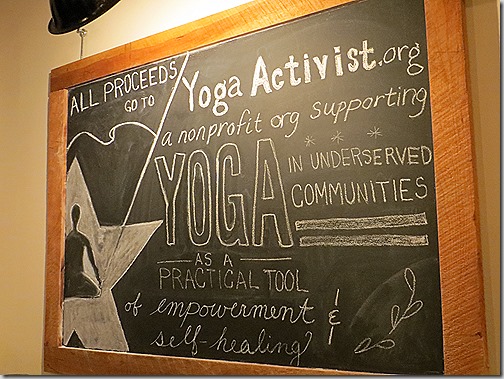 ALL PROCEEDS
GO TO
Yoga Activist.org
a nonprofit org supporting
YOGA
IN UNDERSERVED
COMMUNITIES
AS A
PRACTICAL TOOL
of empowerment &
self-healing